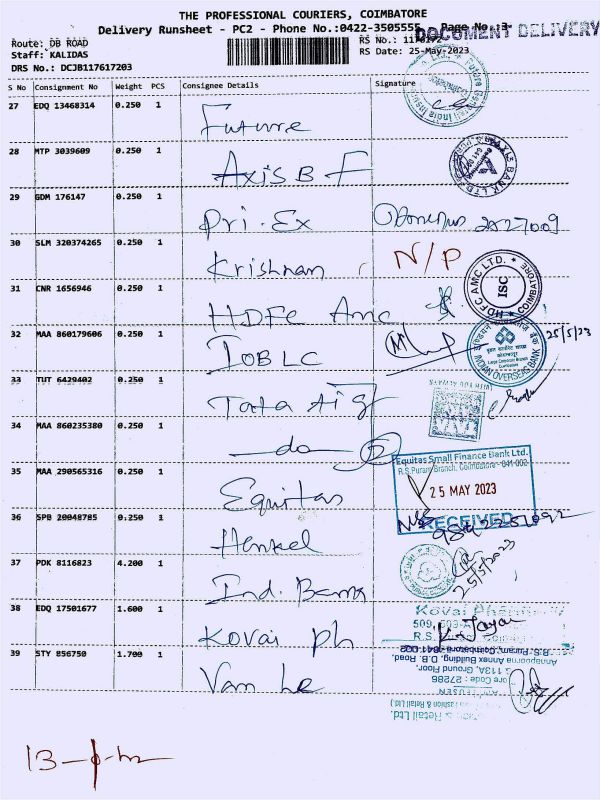 THE PROFESSIONAL COURIERS, COIMBATORE
Delivery Runsheet - PC2 - Phone No.:0422-3505555 Page No.:3
DOCUMENT DELIVERY
Route: DB ROAD
RS No.:
Staff: KALIDAS
RS Date: 25-May-2023
DRS No.: DCJB117617203
S No Consignment No Weight PCS Consignee Details Signature
27 EDQ 13468314 0.250 1 Future
28 MTP 3039609 0.250 1 Axis B F
AXIS BANK LTD
29 GDM 176147 0.250 1 Pri.Ex
30 SLM 320374265 0.250 1 Krishnan N/P
31 CNR 1656946 0.250 1 HDFC Amc
HDFC AMC LTD. * COIMBATORE *
ISC
32 MAA 860179606 0.250 1 IOBLC
INDIAN OVERSEAS BANK
25/5/23
33 TUT 6429402 0.250 1 Tata Aig
WITH YOU ALWAYS
34 MAA 860235380 0.250 1 —do—
35 MAA 290565316 0.250 1 Equitas
Equitas Small Finance Bank Ltd.
R.S.Puram Branch, Coimbatore - 641 002
25 MAY 2023
RECEIVED
36 SPB 20048785 0.250 1 Henkel
37 PDK 8116823 4.200 1 Ind. Bank
25/5/2023
38 EDQ 17501677 1.600 1 Kovai ph
Kovai
R.S.
39 STY 856750 1.700 1 Van he
R.S. Puram, Coimbatore-641 002
Annapoorna Annex Building, D.B. Road,
113A, Ground Floor,
ore Code: 27286
Fashion & Retail Ltd.)
& Retail Ltd.